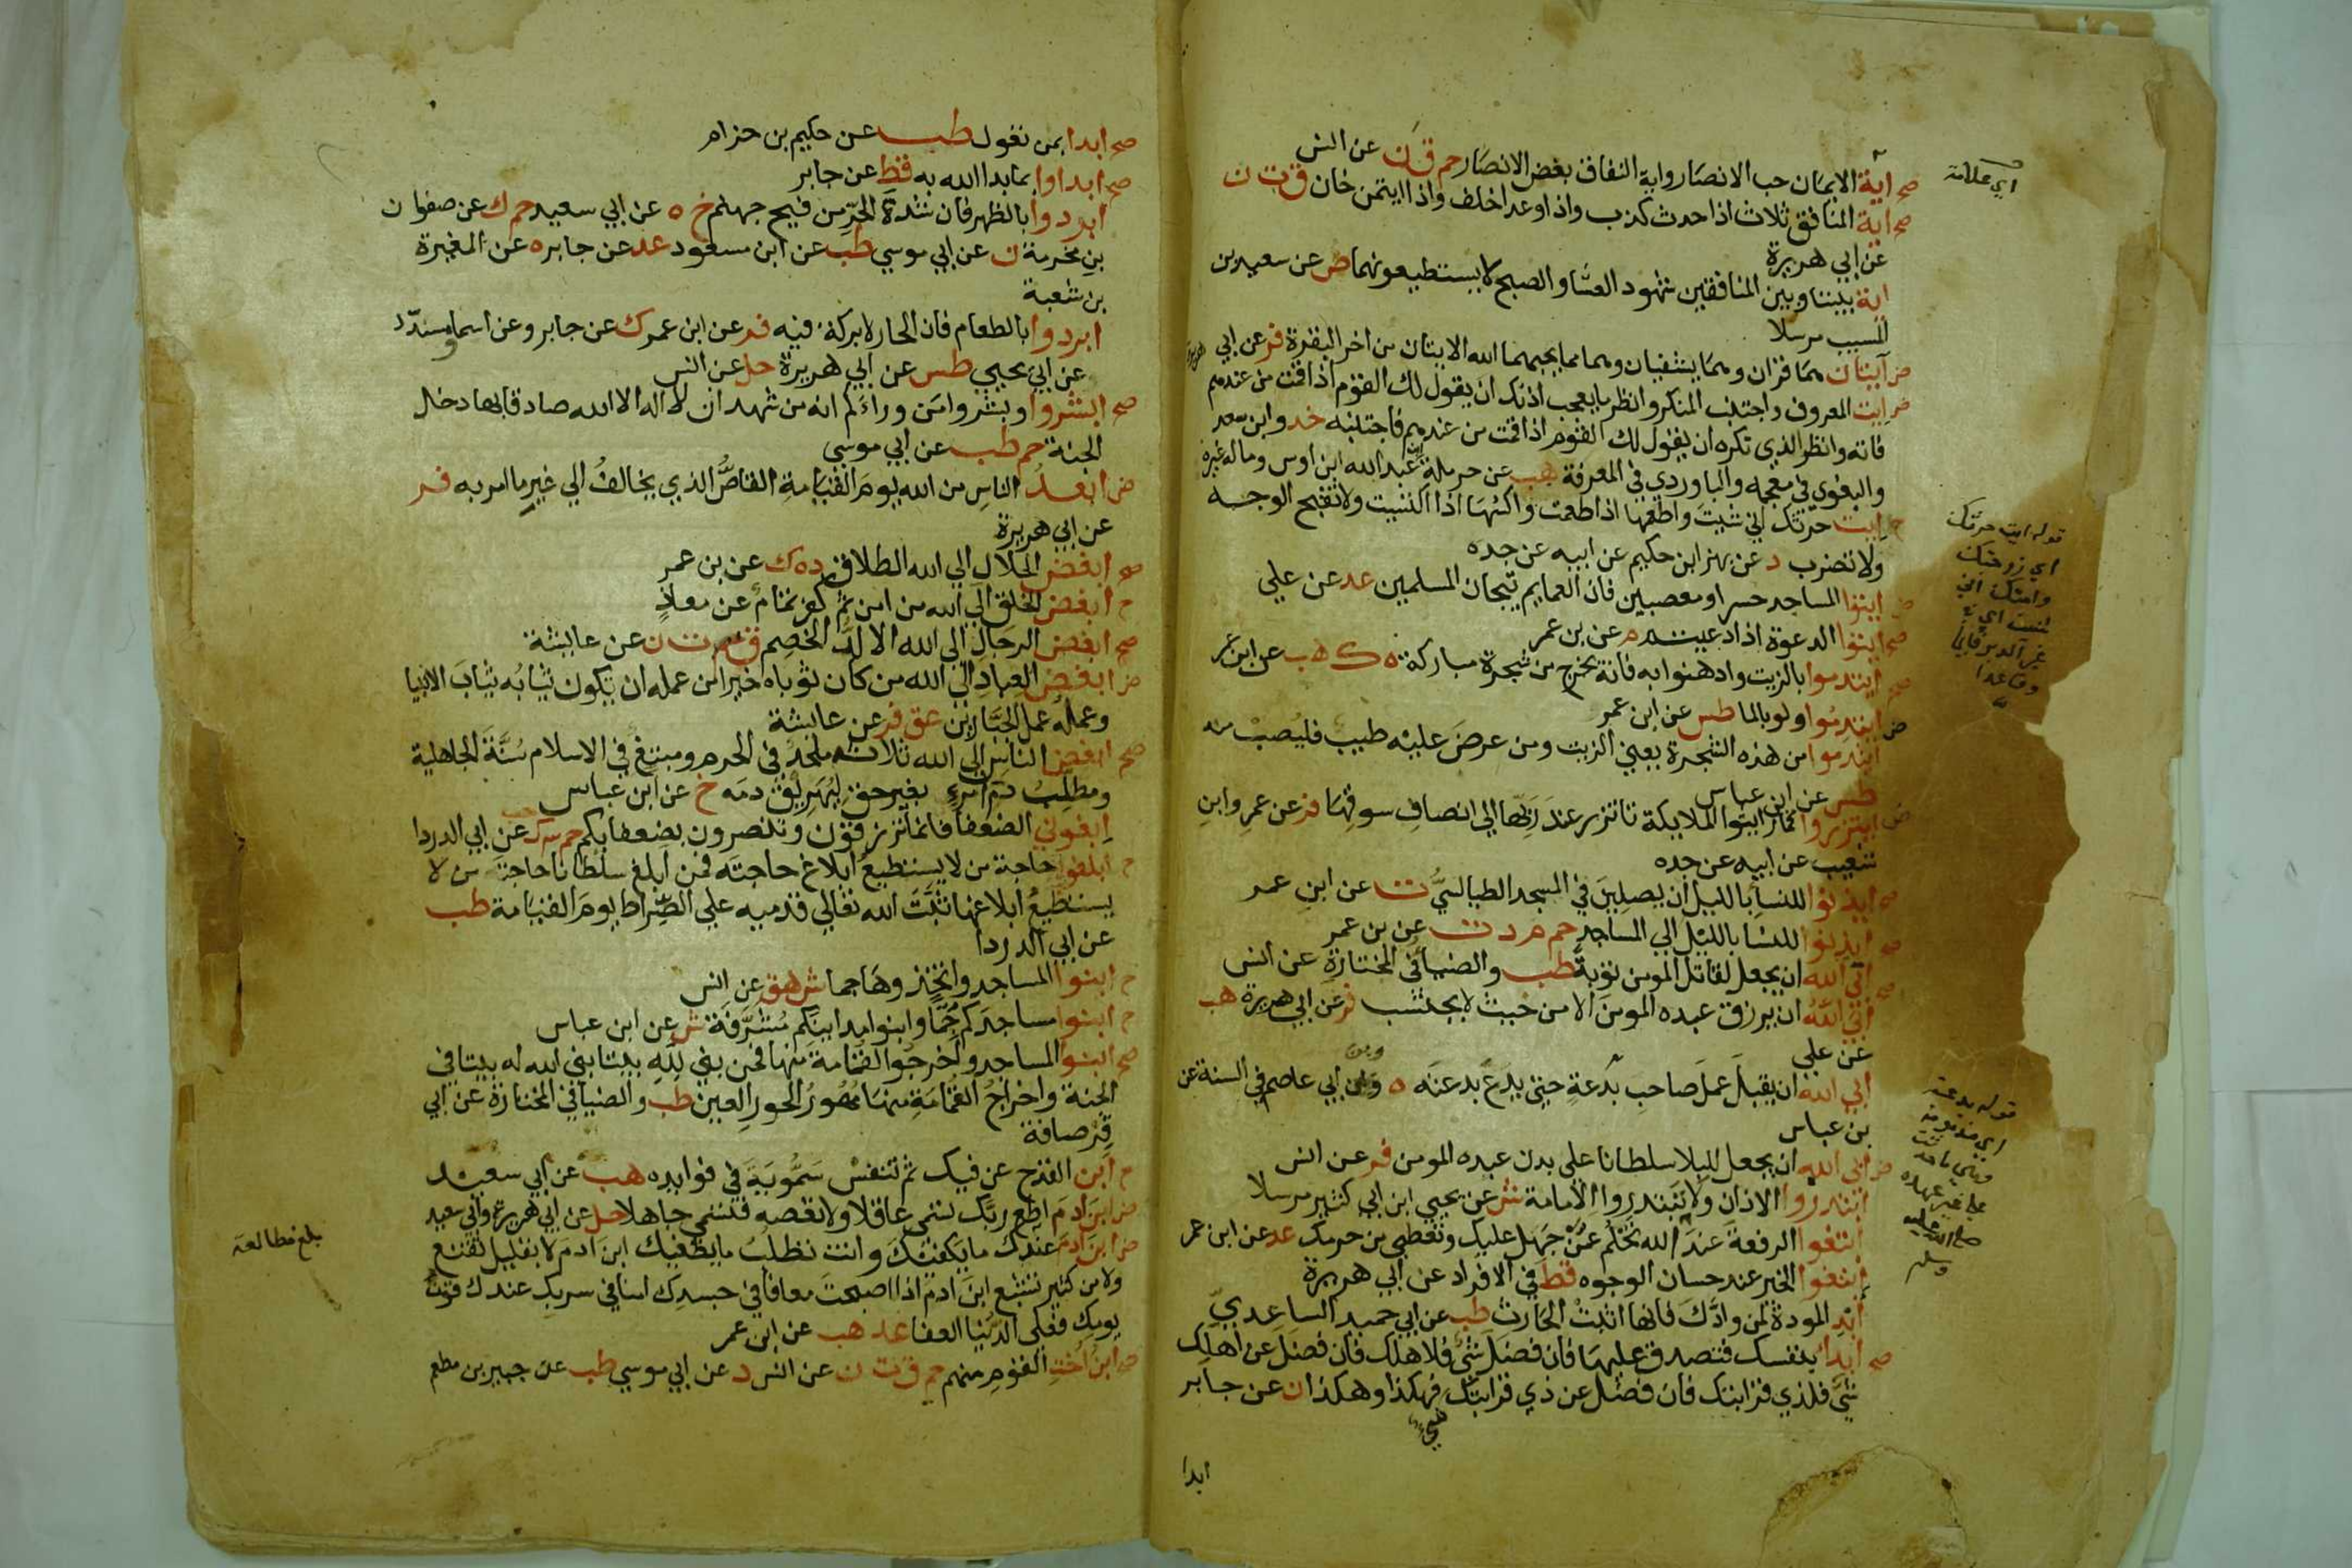 صح اية الايمان حب الانصار واية النفاق بغض الانصار حم ق ن عن انس
اي علامة
صح اية المنافق ثلاث اذا حدث كذب واذا وعد اخلف واذا ايتمن خان ق ت ن
عن ابي هريرة
اية بيننا وبين المنافقين شهود العشا والصبح لا يستطيعونهما ص عن سعيد بن
المسيب مرسلا
ض آيتان هما قران وهما يشفيان وهما مما يحبهما الله الايتان من اخر البقرة فر عن ابي هريرة
ض ايت المعروف واجتنب المنكر وانظر ما يعجب اذنك ان يقول لك القوم اذا قمت من عندهم
فاته وانظر الذي تكره ان يقول لك القوم اذا قمت من عندهم فاجتنبه خد وابن سعد
والبغوي في معجمه والباوردي في المعرفة هب عن حرملة بن عبد الله ابن اوس وماله غيره
ح ايت حرثك اني شيت واطعمها اذا طعمت واكسها اذا اكتسيت ولا تقبح الوجه
ولا تضرب د عن بهز ابن حكيم عن ابيه عن جده
قوله ايت حرثك
اي زوجتك
وامتك اني
ض ايتوا المساجد حسرا ومعصبين فان العمايم تيجان المسلمين عد عن علي
صح ايتوا الدعوة اذا دعيتم م عن بن عمر
صح ايتدموا بالزيت وادهنوا به فانه يخرج من شجرة مباركة ه ك هب عن ابن عمر
ض ايتدموا ولو بالما طس عن ابن عمر
ايتدموا من هذه الشجرة يعني الزيت ومن عرض عليه طيب فليصب منه
طس عن ابن عباس
ض ايتزروا كما رايتوا الملايكة تاتزر عند ربها الي انصاف سوقها فر عن عمرو ابن
شعيب عن ابيه عن جده
صح ايذنوا للنسا بالليل ان يصلين في المسجد الطيالسي ت عن ابن عمر
صح ايذنوا للنسا بالليل الي المساجد حم م د ت عن بن عمر
صح ابي الله ان يجعل لقاتل المومن توبة طب والضيا في المختارة عن انس
ابي الله ان يرزق عبده المومن الا من حيث لا يحتسب فر عن ابي هريرة هب
عن علي
ابي الله ان يقبل عمل صاحب بدعة حتي يدع بدعته ه وبن ابي عاصم في السنة عن
بن عباس
قوله بدعته
اي مذمومة
ض ابي الله ان يجعل للبلا سلطانا علي بدن عبده المومن فر عن انس
ابتدروا الاذان ولا تبتدروا الامامة ش عن يحيي ابن ابي كثير مرسلا
ابتغوا الرفعة عند الله تحلم عمن جهل عليك وتعطي من حرمك عد عن ابن عمر
ابتغوا الخير عند حسان الوجوه قط في الافراد عن ابي هريرة
ابد المودة لمن وادك فانها اثبت الحارث طب عن ابي حميد الساعدي
صح ابدا بنفسك فتصدق عليها فان فضل شي فلاهلك فان فضل عن اهلك
شي فلذي قرابتك فان فضل عن ذي قرابتك شي فهكذا وهكذا ن عن جابر
ابدا
صح ابدا بمن تعول طب عن حكيم بن حزام
صح ابداوا بما بدا الله به قط عن جابر
ابردوا بالظهر فان شدة الحر من فيح جهنم خ ه عن ابي سعيد حم ك عن صفوان
بن مخرمة ن عن ابي موسي طب عن ابن مسعود عد عن جابر ه عن المغيرة
بن شعبة
ابردوا بالطعام فان الحار لا بركة فيه فر عن ابن عمر ك عن جابر وعن اسما مسدد
عن ابي يحيي طس عن ابي هريرة حل عن انس
صح ابشروا وبشروا من وراءكم انه من شهد ان لا اله الا الله صادقا بها دخل
الجنة حم طب عن ابي موسي
ض ابعد الناس من الله يوم القيامة القاص الذي يخالف الي غير ما امر به فر
عن ابي هريرة
صح ابغض الحلال الي الله الطلاق د ه ك عن بن عمر
ح ابغض الخلق الي الله من امن ثم كفر تمام عن معاذ
صح ابغض الرجال الي الله الالد الخصم ق حم ت ن عن عايشة
ض ابغض العباد الي الله من كان ثوباه خيرا من عمله ان يكون ثيابه ثياب الانبيا
وعمله عمل الجبارين عق فر عن عايشة
صح ابغض الناس الي الله ثلاثة ملحد في الحرم ومبتغ في الاسلام سنة الجاهلية
ومطلب دم امرء بغير حق ليهريق دمه خ عن ابن عباس
ابغوني الضعفا فانما ترزقون وتنصرون بضعفايكم حم ك حب عن ابي الدردا
ح ابلغوا حاجة من لا يستطيع ابلاغ حاجته فمن ابلغ سلطانا حاجة من لا
يستطيع ابلاغها ثبت الله تعالي قدميه علي الصراط يوم القيامة طب
عن ابي الدردا
ح ابنوا المساجد واتخذوها جما ش هق عن انس
ح ابنوا مساجدكم جما وابنوا مداينكم مشرفة ش عن ابن عباس
صح ابنوا المساجد واخرجوا القمامة منها فمن بني لله بيتا بني الله له بيتا في
الجنة واخراج القمامة منها مهور الحور العين طب والضيا في المختارة عن ابي
قرصافة
ح ابن القدح عن فيك ثم تنفس سمويه في فوايده هب عن ابي سعيد
ض ابن ادم اطع ربك تسمي عاقلا ولا تعصه فتسمي جاهلا حل عن ابي هريرة وابي سعيد
بلغ مطالعة
ض ابن ادم عندك ما يكفيك وانت تطلب ما يطغيك ابن ادم لا بقليل تقنع
ولا من كثير تشبع ابن ادم اذا اصبحت معافا في جسدك امنا في سربك عندك قوت
يومك فعلي الدنيا العفا عد هب عن ابن عمر
صح ابن اخت القوم منهم حم ق ت ن عن انس د عن ابي موسي طب عن جبير بن مطعم